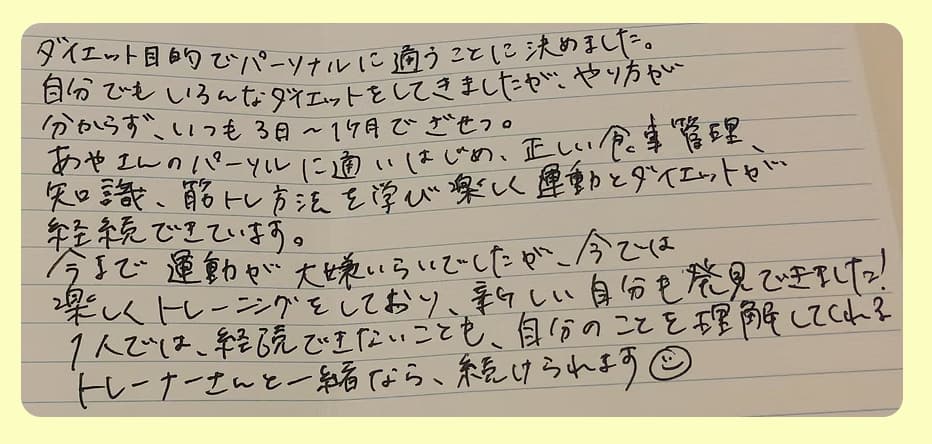 ダイエット目的でパーソナルに通うことに決めました。
自分でもいろんなダイエットをしてきましたが、やり方が
分からず、いつも3日〜1ケ月でざせつ。
あやさんのパーソルに通いはじめ、正しい食事管理、
知識、筋トレ方法を学び楽しく運動とダイエットが
経続できています。
今まで運動が大嫌いらいでしたが、今では
楽しくトレーニングをしており、新しい自分も発見できました!
1人では、経続できないことも、自分のことを理解してくれる
トレーナーさんと一緒なら、続けられます☺